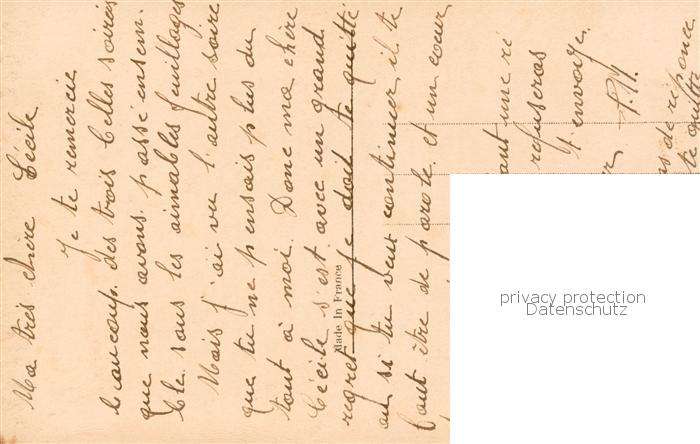 Ma très chère Cécile
Je te remercie
beaucoup des trois belles soirées
que nous avons passé ensem-
ble sous les aimables feuillages
Mais j'ai vu l'autre soire
que tu ne pensais plus du
tout à moi. Donc ma chère
Cécile s'est avec un grand
regret que je doit te quitté
ou si tu veut continuer il te
faut être de parole et un cœur
ant une ré
refuseras
J'envoye
P.M.
ns de réponse
Made in France
privacy protection
Datenschutz